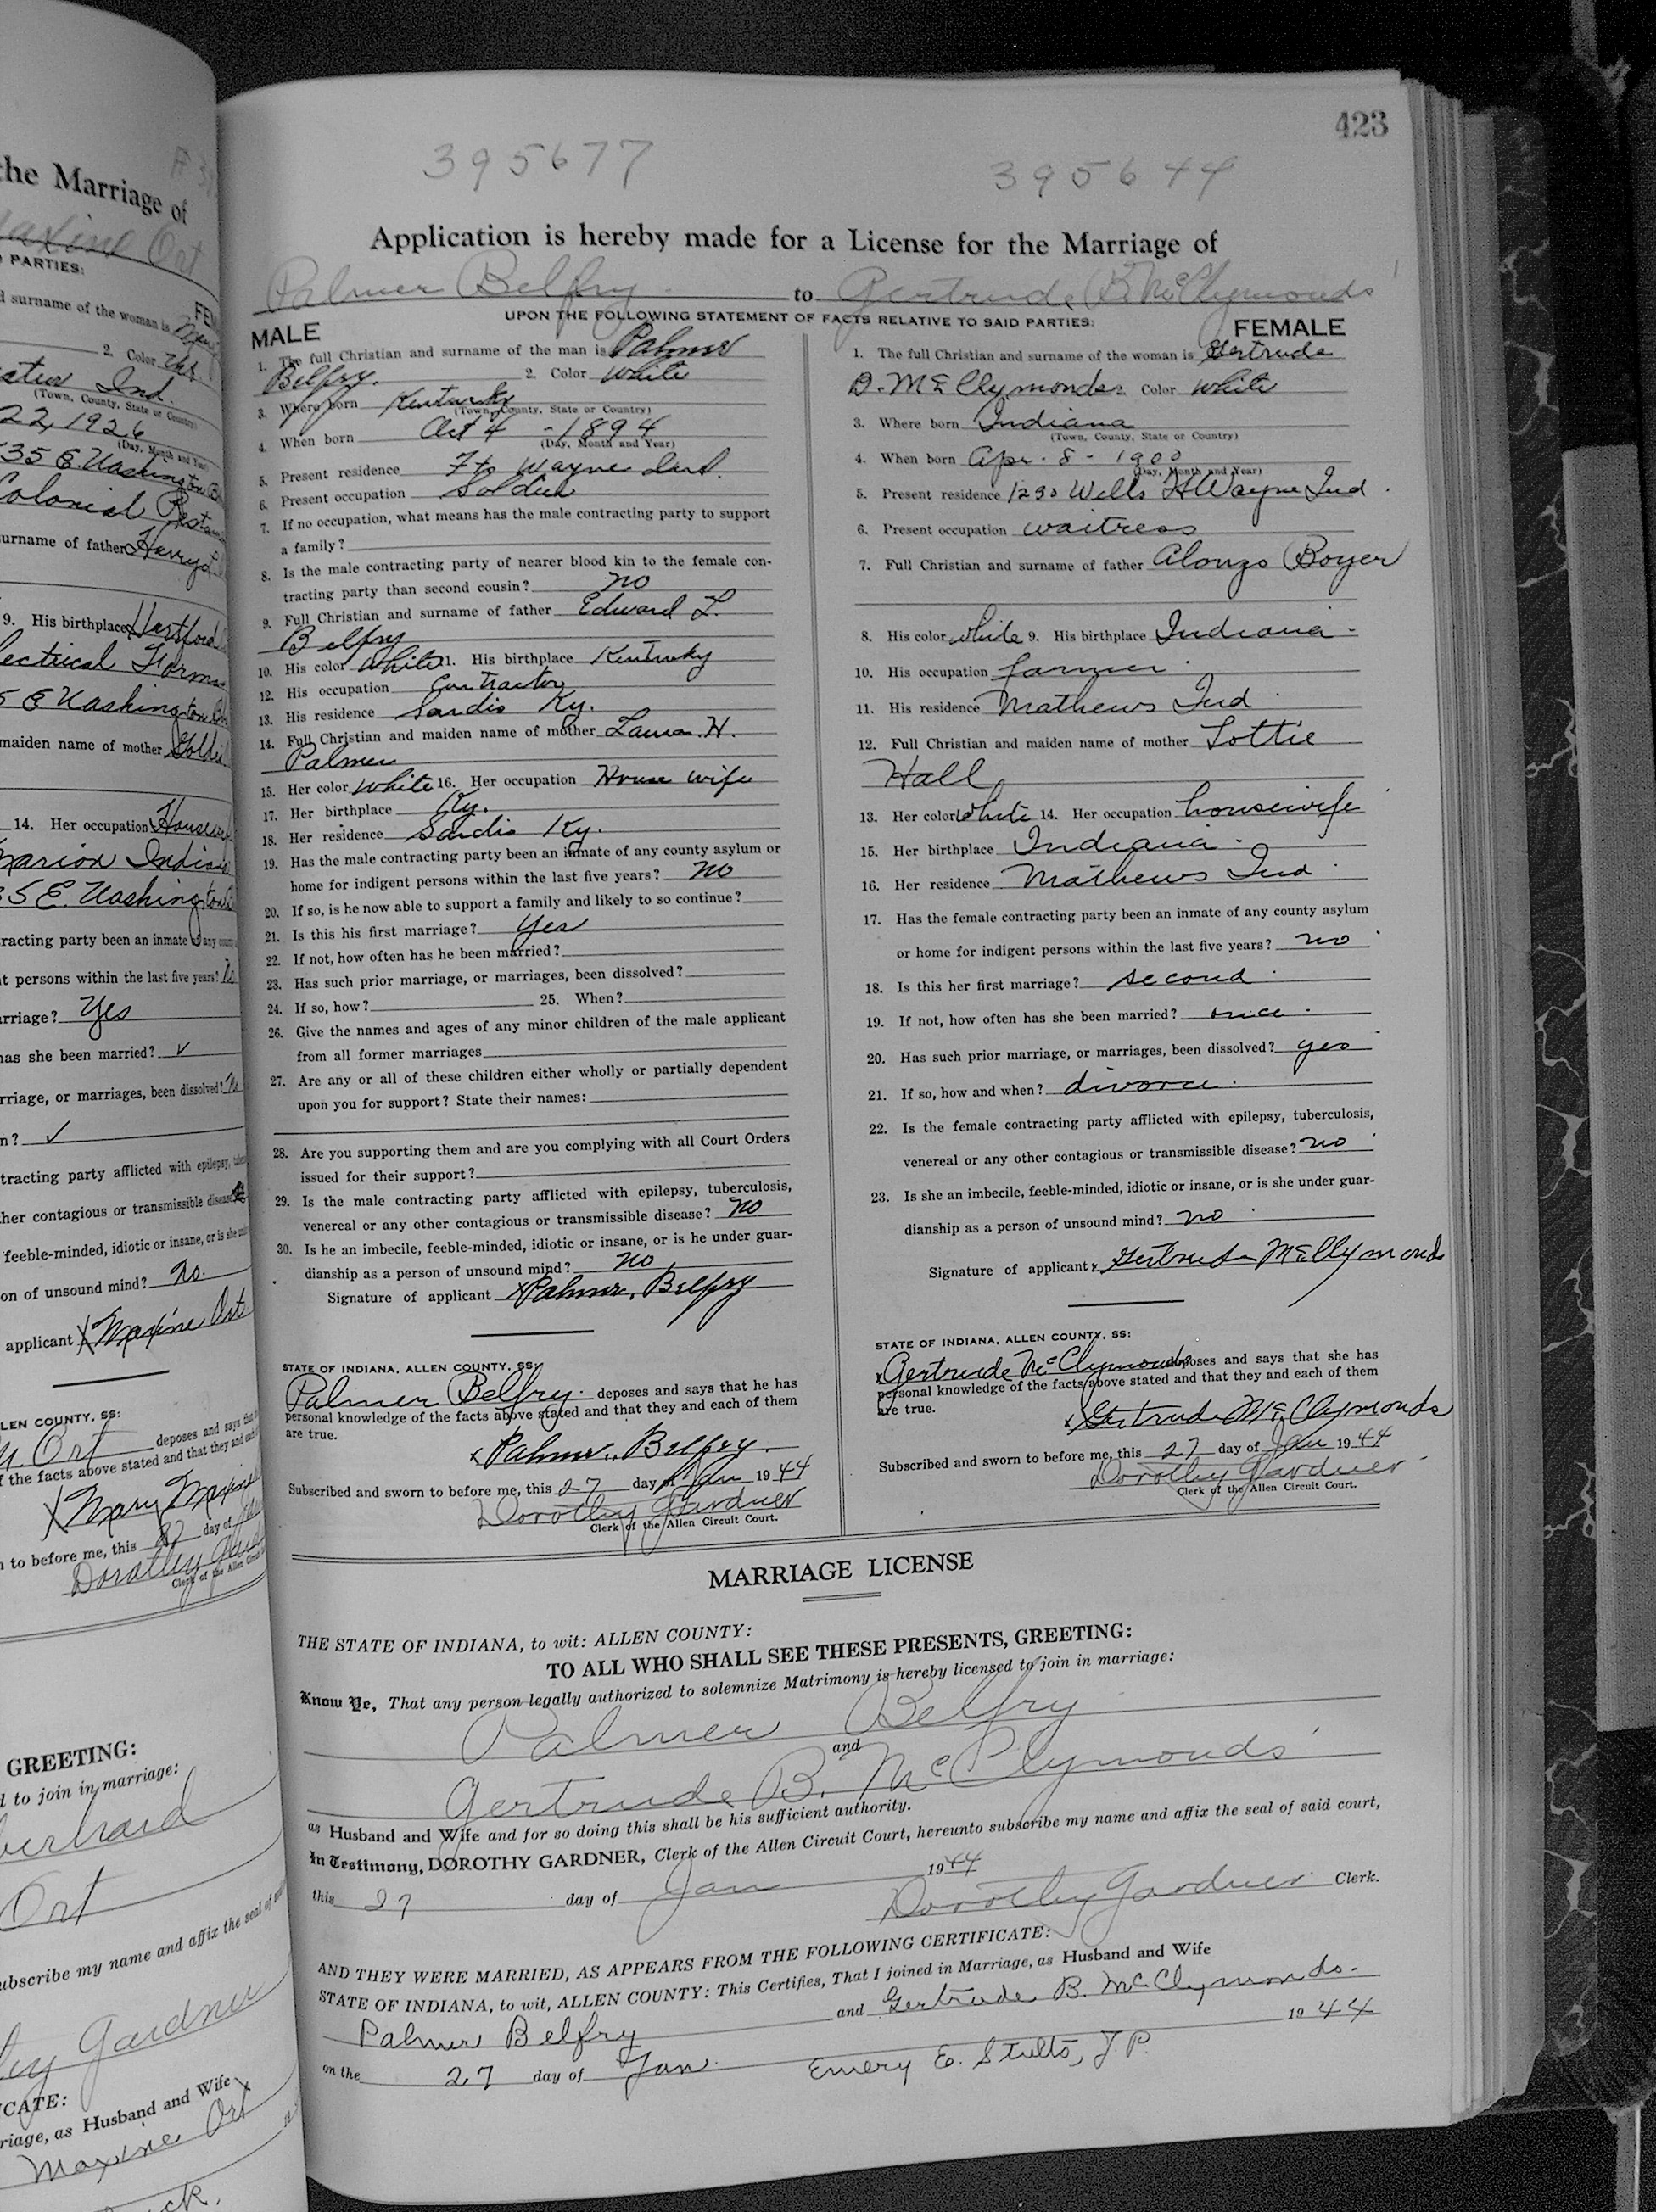 the Marriage of
Maxine Ort
PARTIES:
surname of the woman is
2. Color
Ind.
(Town, County, State or Country)
22, 1926
(Day, Month and Year)
35 E. Washington
Colonial
surname of father Harry
9. His birthplace Hartford
5 E Washington
maiden name of mother Goldie
14. Her occupation House
Marion Indiana
35 E. Washington
racting party been an inmate of any county
t persons within the last five years? No
rriage? Yes
has she been married? ✓
rriage, or marriages, been dissolved?
n? ✓
tracting party afflicted with epilepsy,
her contagious or transmissible disease?
feeble-minded, idiotic or insane, or is she
on of unsound mind? No.
applicant X Maxine Ort
LEN COUNTY, SS:
M. Ort deposes and says that
f the facts above stated and that they and each
X Mary Maxine
n to before me, this 27 day of
Dorothy
Clerk of the Allen Circuit
GREETING:
d to join in marriage:
Ort
ubscribe my name and affix the seal of
Gardner
CATE:
riage, as Husband and Wife
Maxine Ort
423
395677 395644
Application is hereby made for a License for the Marriage of
Palmer Belfry to Gertrude B. McClymonds
UPON THE FOLLOWING STATEMENT OF FACTS RELATIVE TO SAID PARTIES:
MALE
1. The full Christian and surname of the man is Palmer
Belfry. 2. Color White
3. Where born Kentucky
(Town, County, State or Country)
4. When born Oct 4 - 1894
(Day, Month and Year)
5. Present residence Ft Wayne Ind.
6. Present occupation Soldier
7. If no occupation, what means has the male contracting party to support
a family?
8. Is the male contracting party of nearer blood kin to the female con-
tracting party than second cousin? no
9. Full Christian and surname of father Edward L.
Belfry
10. His color White 11. His birthplace Kentucky
12. His occupation Contractor
13. His residence Sardis Ky.
14. Full Christian and maiden name of mother Laura H.
Palmer
15. Her color White 16. Her occupation House wife
17. Her birthplace Ky.
18. Her residence Sardis Ky.
19. Has the male contracting party been an inmate of any county asylum or
home for indigent persons within the last five years? no
20. If so, is he now able to support a family and likely to so continue?
21. Is this his first marriage? Yes
22. If not, how often has he been married?
23. Has such prior marriage, or marriages, been dissolved?
24. If so, how? 25. When?
26. Give the names and ages of any minor children of the male applicant
from all former marriages
27. Are any or all of these children either wholly or partially dependent
upon you for support? State their names:
28. Are you supporting them and are you complying with all Court Orders
issued for their support?
29. Is the male contracting party afflicted with epilepsy, tuberculosis,
venereal or any other contagious or transmissible disease? no
30. Is he an imbecile, feeble-minded, idiotic or insane, or is he under guar-
dianship as a person of unsound mind? no
Signature of applicant X Palmer Belfry
STATE OF INDIANA, ALLEN COUNTY, SS:
Palmer Belfry. deposes and says that he has
personal knowledge of the facts above stated and that they and each of them
are true.
x Palmer Belfry.
Subscribed and sworn to before me, this 27 day of Jan 1944
Dorothy Gardner
Clerk of the Allen Circuit Court.
FEMALE
1. The full Christian and surname of the woman is Gertrude
B. McClymonds 2. Color White
3. Where born Indiana
(Town, County, State or Country)
4. When born Apr. 8 - 1900
(Day, Month and Year)
5. Present residence 1230 Wells Ft Wayne Ind.
6. Present occupation waitress
7. Full Christian and surname of father Alonzo Boyer
8. His color White 9. His birthplace Indiana
10. His occupation farmer
11. His residence Mathews Ind
12. Full Christian and maiden name of mother Lottie
Hall
13. Her color White 14. Her occupation housewife
15. Her birthplace Indiana
16. Her residence Mathews Ind
17. Has the female contracting party been an inmate of any county asylum
or home for indigent persons within the last five years? no
18. Is this her first marriage? second
19. If not, how often has she been married? once
20. Has such prior marriage, or marriages, been dissolved? yes
21. If so, how and when? divorce
22. Is the female contracting party afflicted with epilepsy, tuberculosis,
venereal or any other contagious or transmissible disease? no
23. Is she an imbecile, feeble-minded, idiotic or insane, or is she under guar-
dianship as a person of unsound mind? no
Signature of applicant x Gertrude McClymonds
STATE OF INDIANA, ALLEN COUNTY, SS:
Gertrude McClymonds deposes and says that she has
personal knowledge of the facts above stated and that they and each of them
are true.
x Gertrude McClymonds
Subscribed and sworn to before me, this 27 day of Jan 1944
Dorothy Gardner
Clerk of the Allen Circuit Court.
MARRIAGE LICENSE
THE STATE OF INDIANA, to wit: ALLEN COUNTY:
TO ALL WHO SHALL SEE THESE PRESENTS, GREETING:
Know Ye, That any person legally authorized to solemnize Matrimony is hereby licensed to join in marriage:
Palmer Belfry
and
Gertrude B. McClymonds
as Husband and Wife and for so doing this shall be his sufficient authority.
In Testimony, DOROTHY GARDNER, Clerk of the Allen Circuit Court, hereunto subscribe my name and affix the seal of said court,
this 27 day of Jan 1944
Dorothy Gardner Clerk.
AND THEY WERE MARRIED, AS APPEARS FROM THE FOLLOWING CERTIFICATE:
STATE OF INDIANA, to wit, ALLEN COUNTY: This Certifies, That I joined in Marriage, as Husband and Wife
Palmer Belfry and Gertrude B. McClymonds.
on the 27 day of Jan. 1944
Emery E. Stults, J.P.